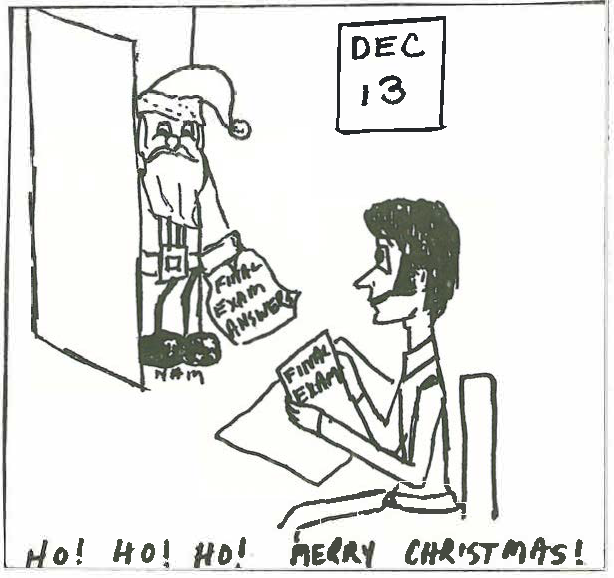 DEC
13
FINAL
EXAM
ANSWERS
FINAL
EXAM
NAM
HO! HO! HO! MERRY CHRISTMAS!